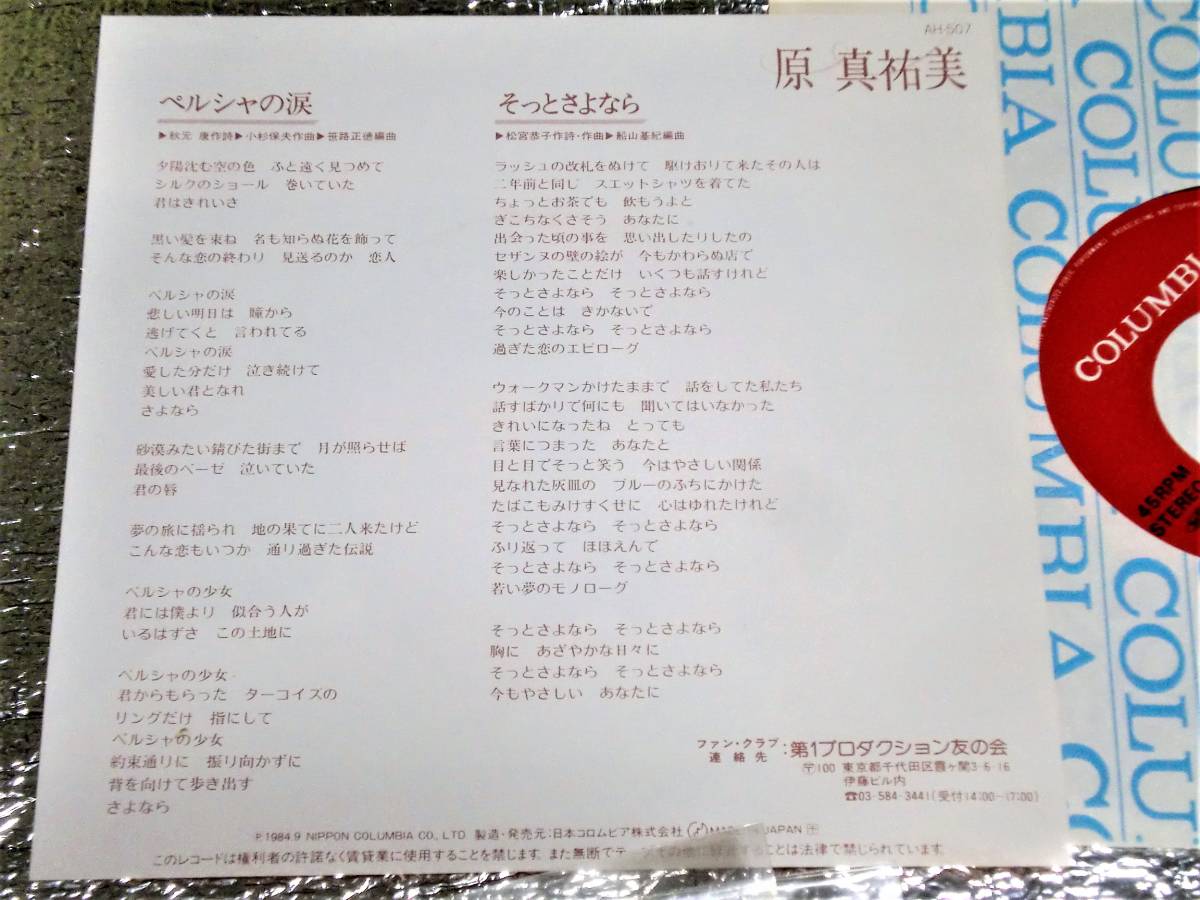 AH-507
原 真祐美
ペルシャの涙
▶秋元 康作詩▶小杉保夫作曲▶笹路正徳編曲
夕陽沈む空の色 ふと遠く見つめて
シルクのショール 巻いていた
君はきれいさ
黒い髪を束ね 名も知らぬ花を飾って
そんな恋の終わり 見送るのか 恋人
ペルシャの涙
悲しい明日は 瞳から
逃げてくと 言われてる
ペルシャの涙
愛した分だけ 泣き続けて
美しい君となれ
さよなら
砂漠みたい錆びた街まで 月が照らせば
最後のベーゼ 泣いていた
君の唇
夢の旅に揺られ 地の果てに二人来たけど
こんな恋もいつか 通り過ぎた伝説
ペルシャの少女
君には僕より 似合う人が
いるはずさ この土地に
ペルシャの少女
君からもらった ターコイズの
リングだけ 指にして
ペルシャの少女
約束通りに 振り向かずに
背を向けて歩き出す
さよなら
そっとさよなら
▶松宮恭子作詩・作曲▶船山基紀編曲
ラッシュの改札をぬけて 駆けおりて来たその人は
二年前と同じ スエットシャツを着てた
ちょっとお茶でも 飲もうよと
ぎこちなくさそう あなたに
出会った頃の事を 思い出したりしたの
セザンヌの壁の絵が 今もかわらぬ店で
楽しかったことだけ いくつも話すけれど
そっとさよなら そっとさよなら
今のことは きかないで
そっとさよなら そっとさよなら
過ぎた恋のエピローグ
ウォークマンかけたままで 話をしてた私たち
話すばかりで何にも 聞いてはいなかった
きれいになったね とっても
言葉につまった あなたと
目と目でそっと笑う 今はやさしい関係
見なれた灰皿の ブルーのふちにかけた
たばこもみけすくせに 心はゆれたけれど
そっとさよなら そっとさよなら
ふり返って ほほえんで
そっとさよなら そっとさよなら
若い夢のモノローグ
そっとさよなら そっとさよなら
胸に あざやかな日々に
そっとさよなら そっとさよなら
今もやさしい あなたに
ファン・クラブ連絡先:第1プロダクション友の会
〒100 東京都千代田区霞ヶ関3-6-16
伊藤ビル内
☎03-584-3441(受付14:00~17:00)
℗1984.9 NIPPON COLUMBIA CO., LTD. 製造・発売元:日本コロムビア株式会社 JAPAN
このレコードは権利者の許諾なく賃貸業に使用することを禁じます。また無断でテープその他に することは法律で禁じられています。
COLUMBIA
45RPM
STEREO
COLUMBIA